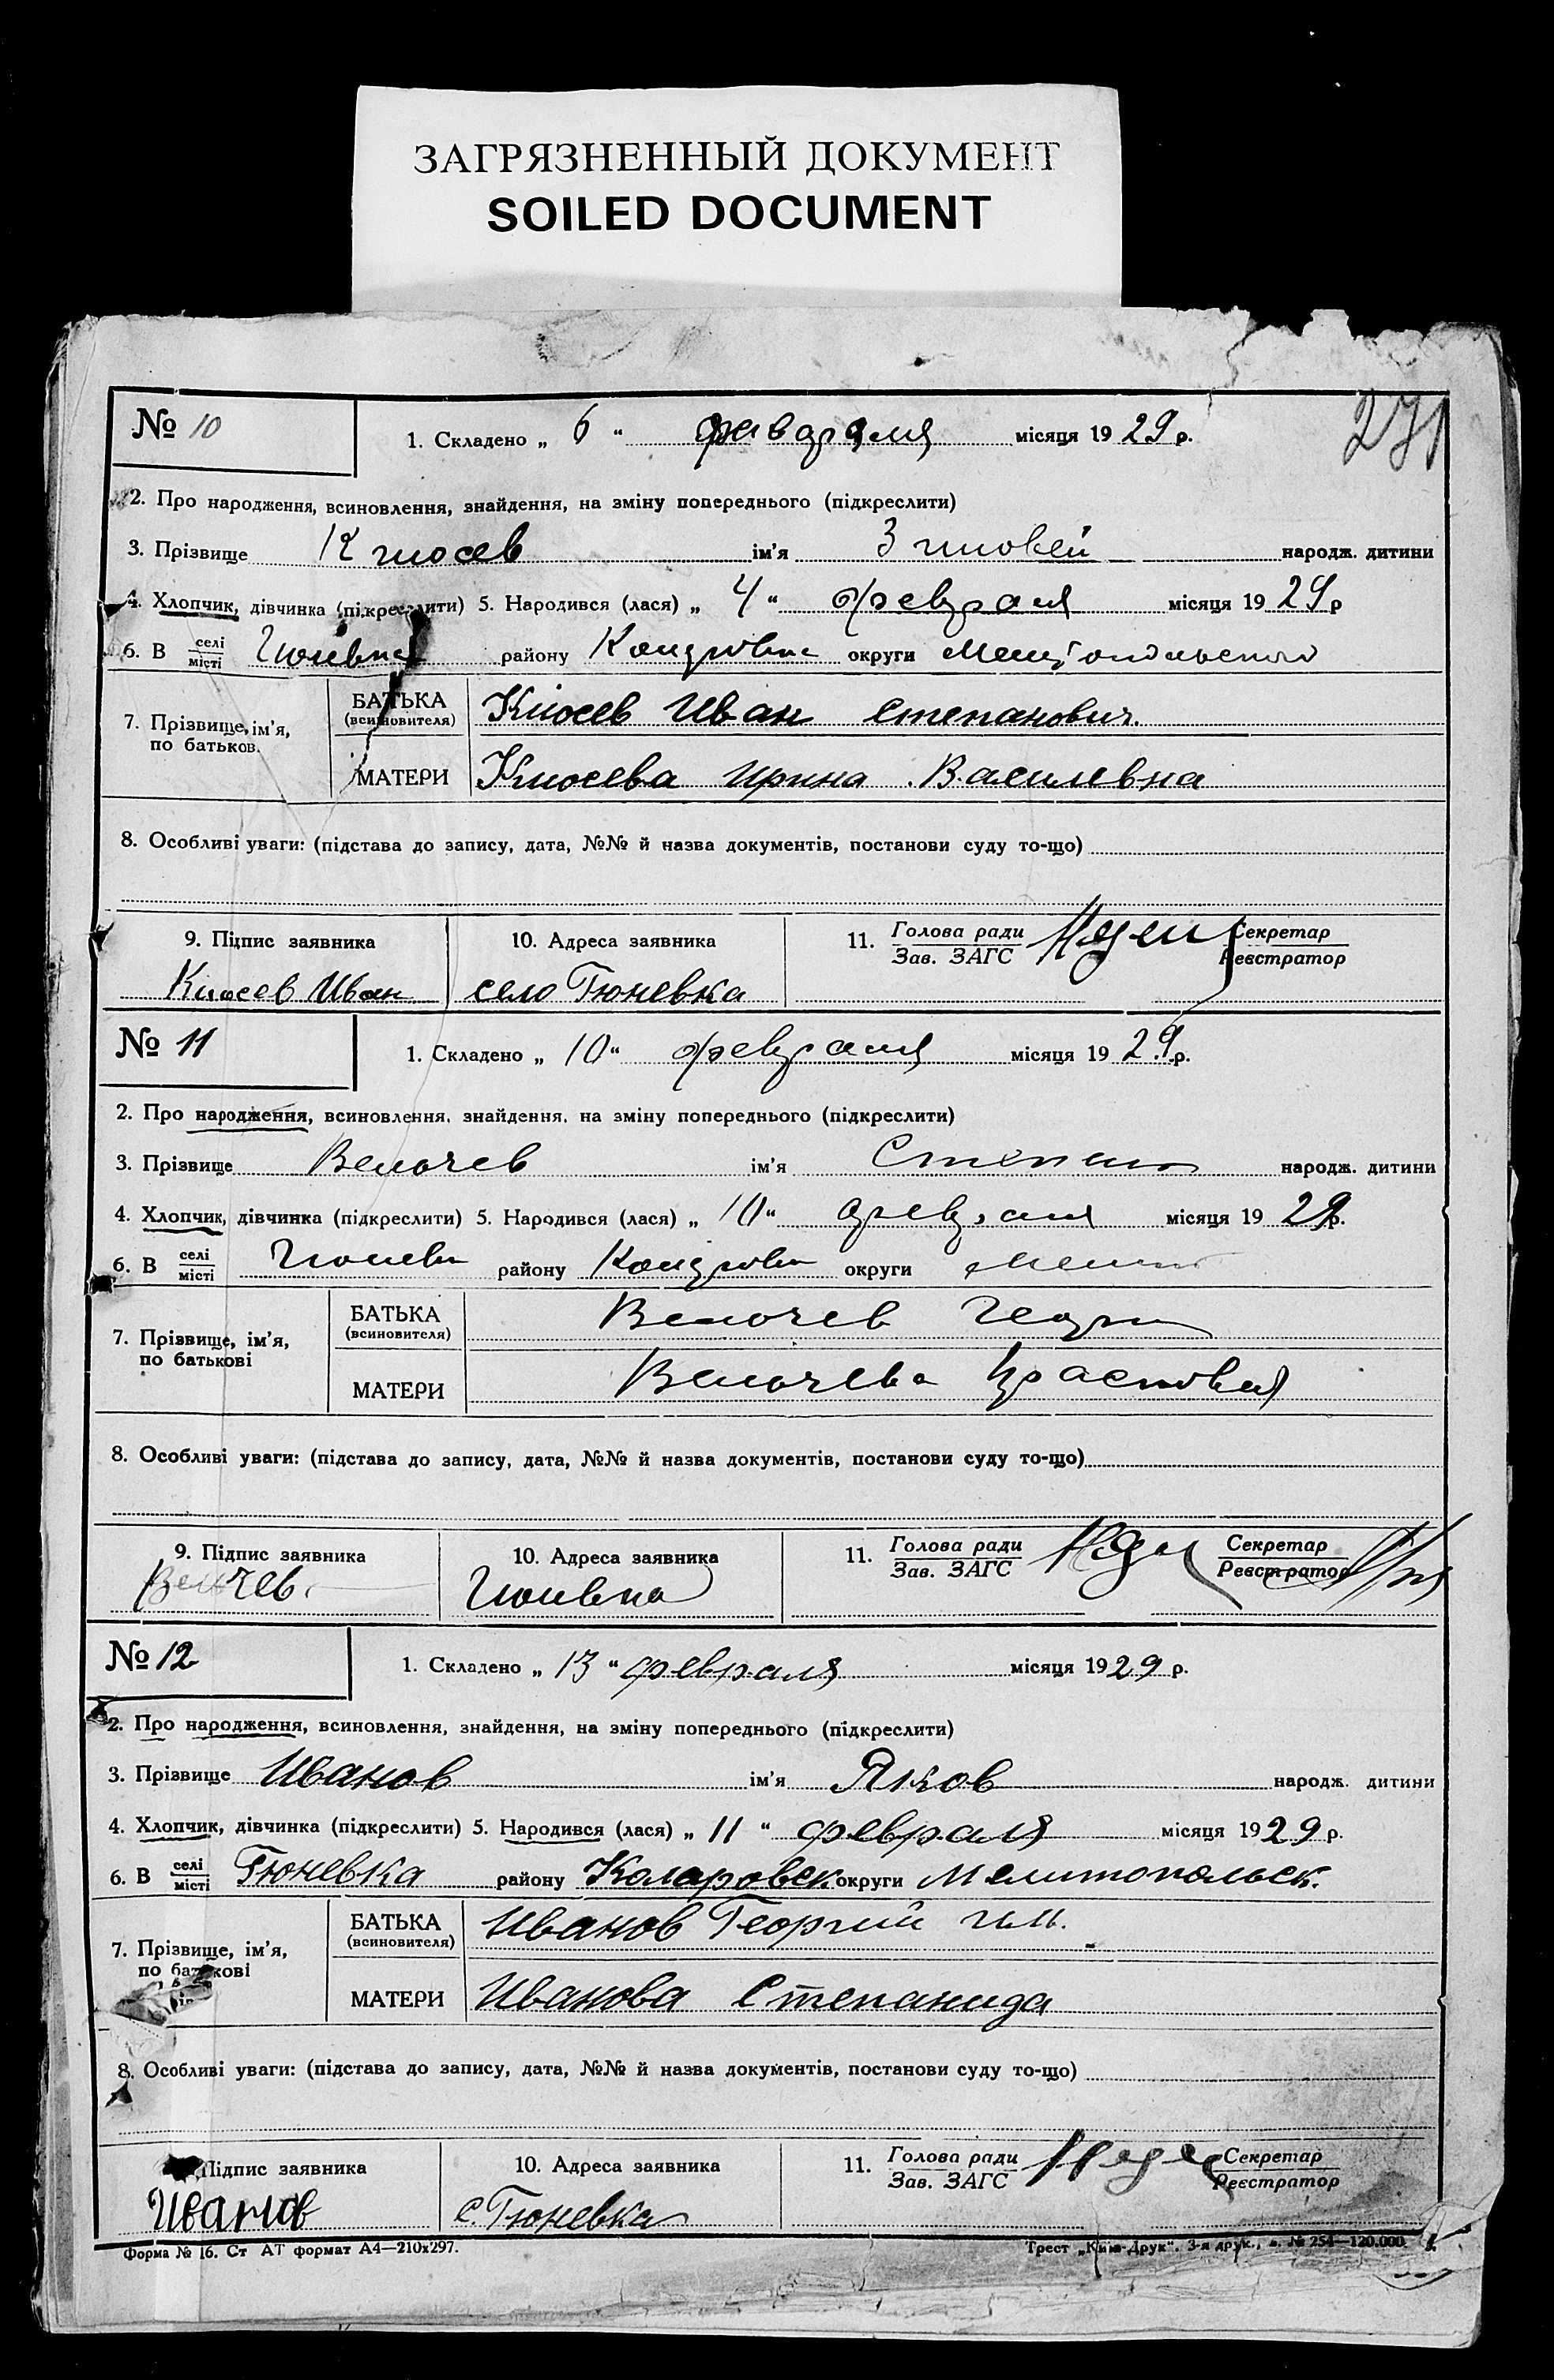 ЗАГРЯЗНЕННЫЙ ДОКУМЕНТ
SOILED DOCUMENT
271
№ 10
1. Складено „ 6 “ февраля місяця 19 29 р.
2. Про народження, всиновлення, знайдення, на зміну попереднього (підкреслити)
3. Прізвище Киосев ім'я народж. дитини
4. Хлопчик, дівчинка (підкреслити) 5. Народився (лася) „ 4 “ февраля місяця 19 29 р
6. В селі місті Гюневка району округи
7. Прізвище, ім'я, по батьков.
БАТЬКА (всиновителя) Киосев Иван Степанович.
МАТЕРИ Киосева Ирина Василевна
8. Особливі уваги: (підстава до запису, дата, №№ й назва документів, постанови суду то-що)
9. Підпис заявника
Киосев Иван
10. Адреса заявника
село Гюневка
11. Голова ради Зав. ЗАГС
Секретар Реєстратор
№ 11
1. Складено „ 10 “ февраля місяця 19 29 р.
2. Про народження, всиновлення, знайдення, на зміну попереднього (підкреслити)
3. Прізвище Велючев ім'я Степан народж. дитини
4. Хлопчик, дівчинка (підкреслити) 5. Народився (лася) „ 10 “ февраля місяця 19 29 р.
6. В селі місті району округи
7. Прізвище, ім'я, по батькові
БАТЬКА (всиновителя) Велючев
МАТЕРИ Велючева
8. Особливі уваги: (підстава до запису, дата, №№ й назва документів, постанови суду то-що)
9. Підпис заявника
10. Адреса заявника
Гюневка
11. Голова ради Зав. ЗАГС
Секретар Реєстратор
№ 12
1. Складено „ 13 “ февраля місяця 19 29 р.
2. Про народження, всиновлення, знайдення, на зміну попереднього (підкреслити)
3. Прізвище Иванов ім'я Яков народж. дитини
4. Хлопчик, дівчинка (підкреслити) 5. Народився (лася) „ 11 “ февраля місяця 19 29 р.
6. В селі місті Гюневка району Коларовск округи Мелитопольск.
7. Прізвище, ім'я, по батькові
БАТЬКА (всиновителя) Иванов Георгий
МАТЕРИ Иванова Степанида
8. Особливі уваги: (підстава до запису, дата, №№ й назва документів, постанови суду то-що)
Підпис заявника
Иванов
10. Адреса заявника
с. Гюневка
11. Голова ради Зав. ЗАГС
Секретар Реєстратор
Форма № 16. Ст АТ формат А4—210х297.
Трест „Київ-Друк“. 3-я друк., № 254—120.000.